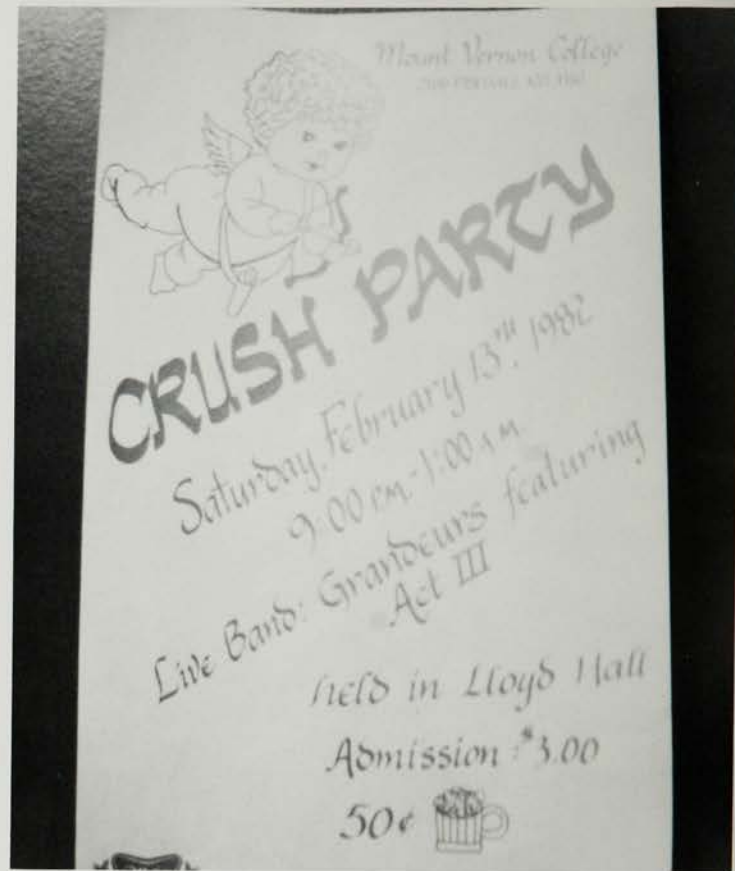 Mount Vernon College
CRUSH PARTY
Saturday, February 13TH, 1982
9:00 PM-1:00 AM
Live Band: Grandeurs featuring
Act III
held in Lloyd Hall
Admission: $3.00
50¢